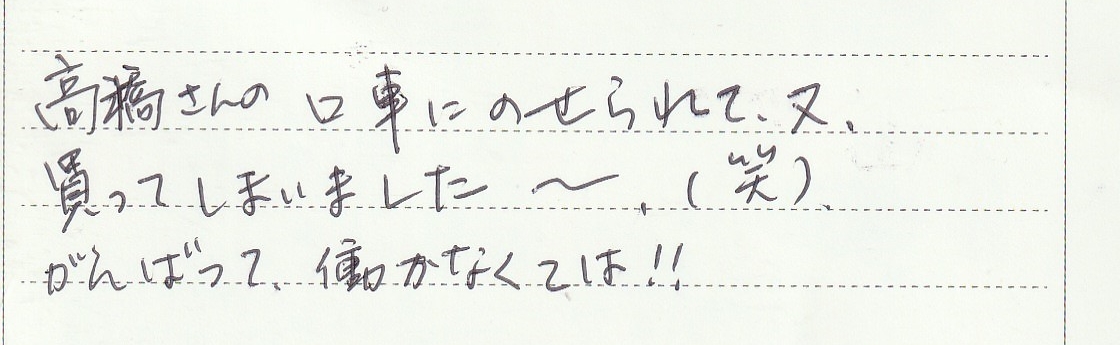 高橋さんの口車にのせられて、又、
買ってしまいました〜、(笑)、
がんばって、働かなくては!!